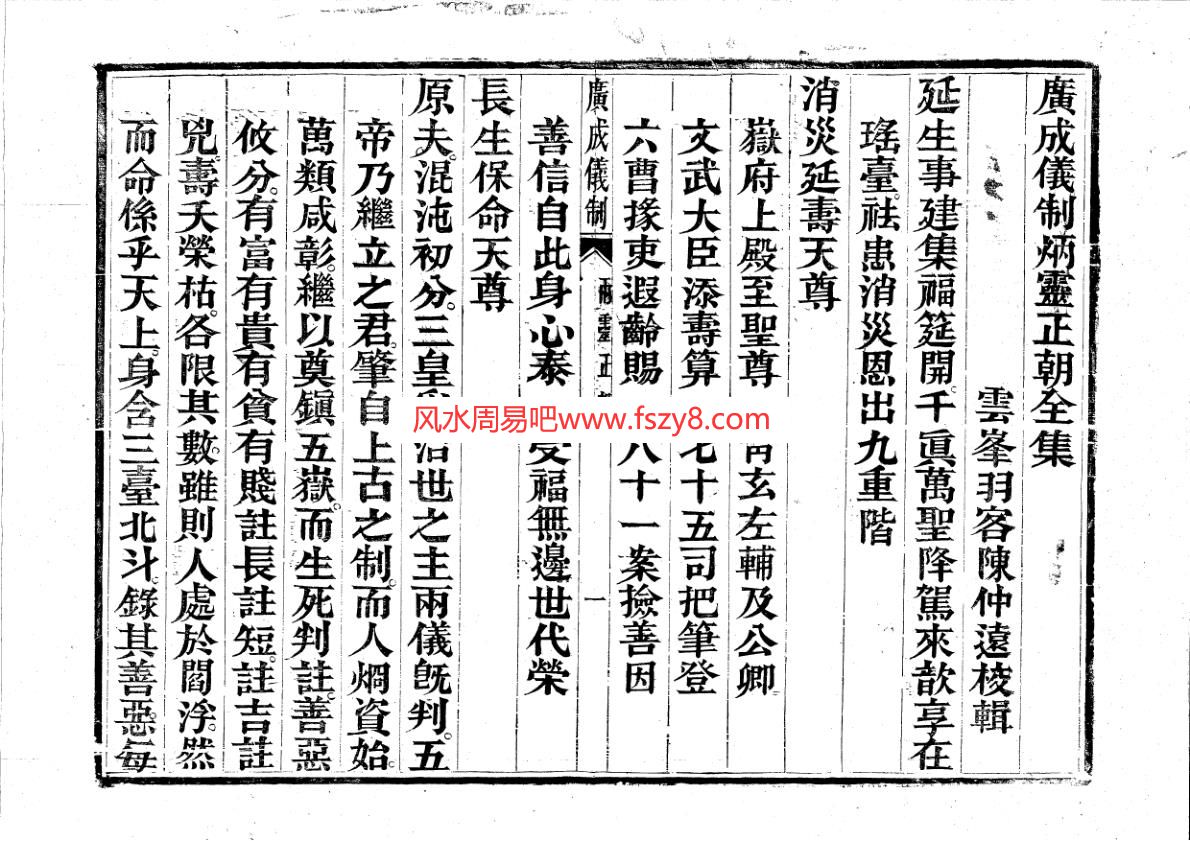 廣成儀制炳靈正朝全集
雲峯羽客陳仲遠校輯
延生事建集福筵開。千眞萬聖降駕來歆享在
瑤臺。祛患消災恩出九重階
消災延壽天尊
嶽府上殿至聖尊 玄左輔及公卿
文武大臣添壽算 七十五司把筆登
六曹掾吏遐齡賜 八十一案撿善因
廣成儀制 炳靈正 一
善信自此身心泰 受福無邊世代榮
長生保命天尊
原夫。混沌初分。三皇 治世之主兩儀旣判。五
帝乃繼立之君。肇自上古之制。而人烱資始。
萬類咸彰。繼以奠鎭五嶽。而生死判註。善惡
攸分。有富有貴有貧有賤註長註短。註吉註
兇。壽夭榮枯。各限其數。雖則人處於閻浮。然
而命係乎天上。身含三臺北斗。錄其善惡。每
风水周易吧www.fszy8.com